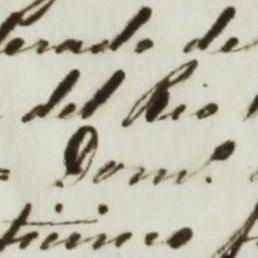 lerado de
del Rio
= Dom.º
tísimo